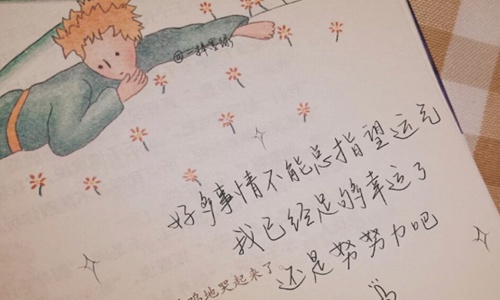 好多事情不能总指望运气
我已经足够幸运了
还是努努力吧
地哭起来了